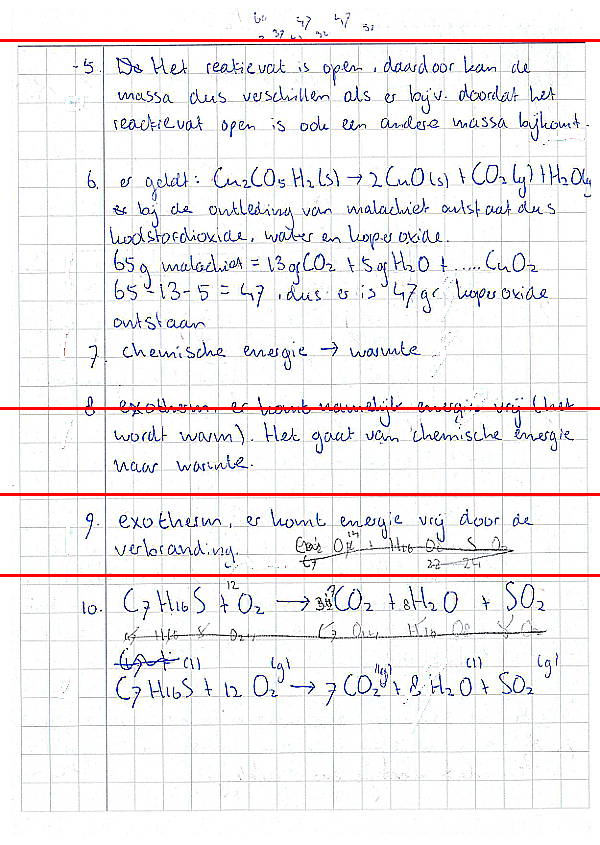 60 47 47
- 5. Het reactievat is open, daardoor kan de
massa dus verschillen als er bijv. doordat het
reactievat open is ook een andere massa bijkomt.
6. er geldt: Cu2CO5H2(s) → 2CuO(s) + CO2(g) + H2O(g)
bij de ontleding van malachiet ontstaat dus
koolstofdioxide, water en koperoxide.
65g malachiet = 13gCO2 + 5gH2O + ..... CuO2
65-13-5 = 47, dus er is 47gr koperoxide
ontstaan
7. chemische energie → warmte
8 exotherm, er komt namelijk energie vrij (het
wordt warm). Het gaat van chemische energie
naar warmte.
9. exotherm, er komt energie vrij door de
verbranding.
10. C7H16S + 12 O2 → 7 CO2 + 8 H2O + SO2
(l) (g) (g) (l) (g)
C7H16S + 12 O2 → 7 CO2 + 8 H2O + SO2